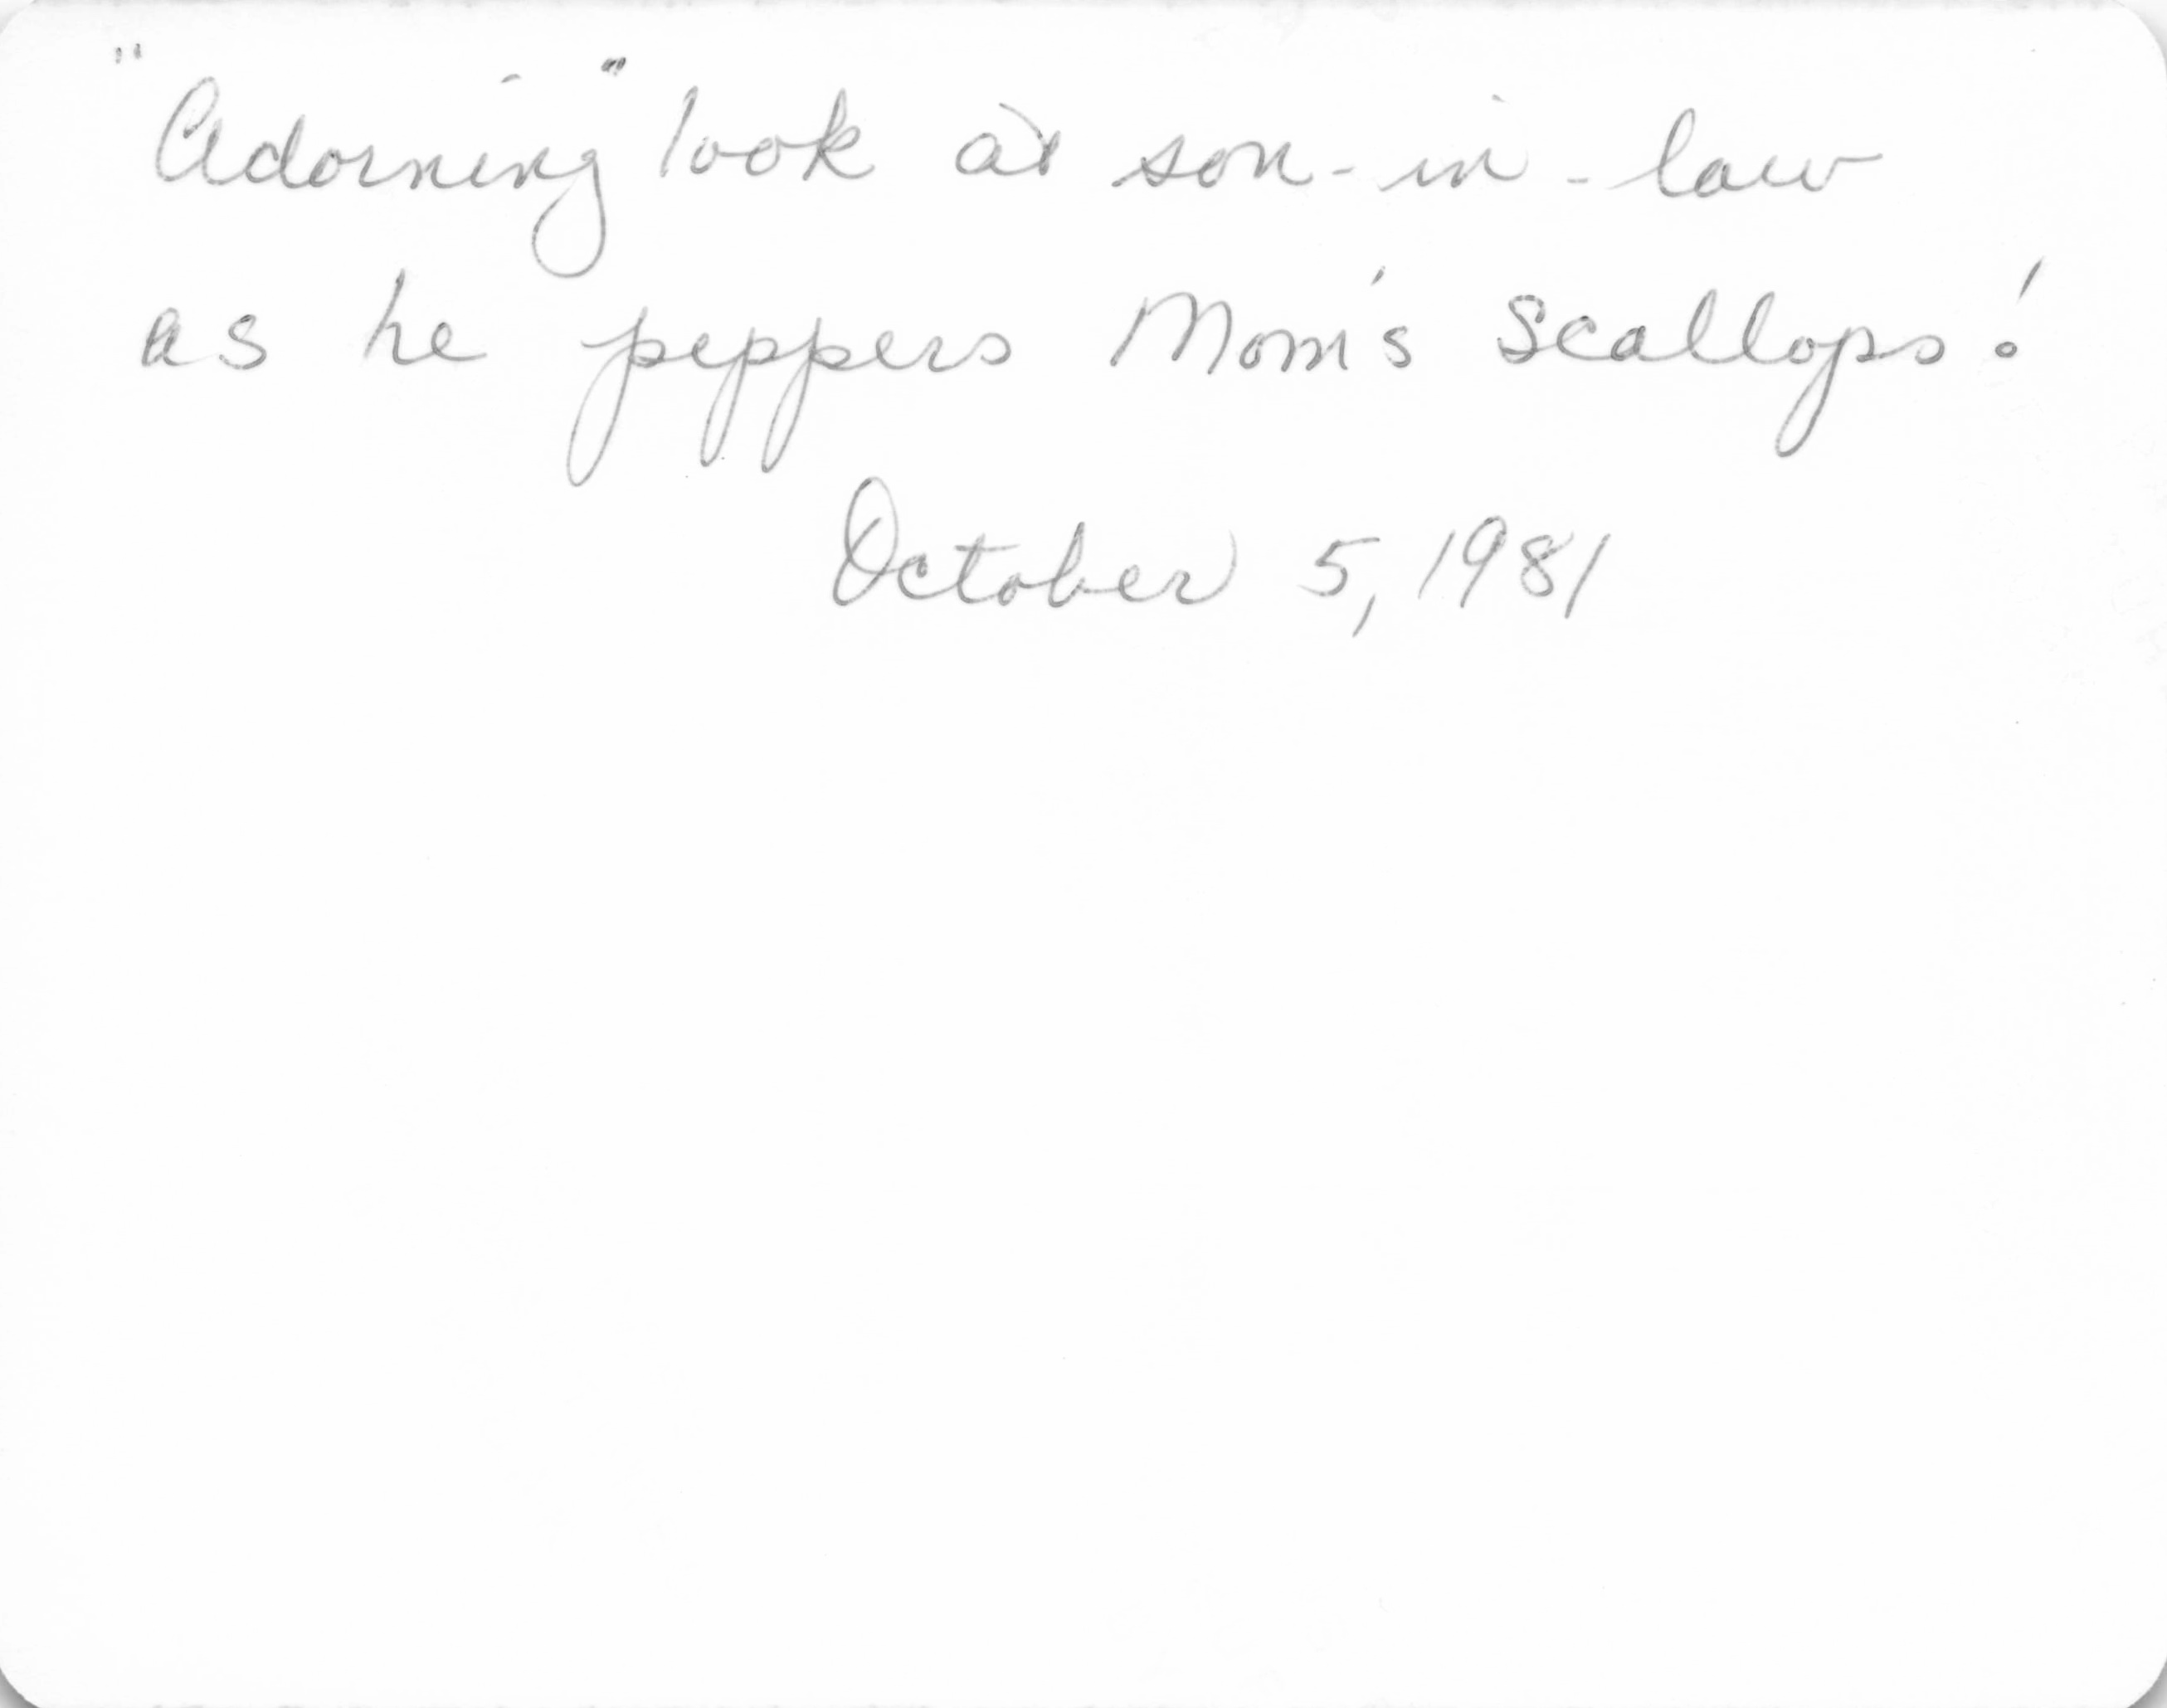 "Adorning" look at son-in-law
as he peppers Mom's Scallops!
October 5, 1981